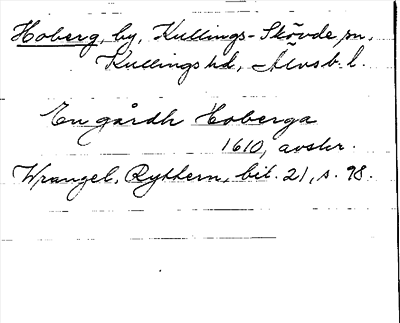 Hoberg, by, Kullings-Skövde sn,
Kullings hd, Älvsb. l.
En gårdh Hoberga
1610, avskr.
Wrangel, Ryttern, bil. 21, s. 98.